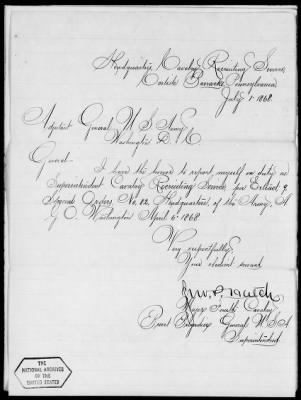 Headquarters Cavalry Recruiting Service,
Carlisle Barracks, Pennsylvania
July 1st 1868.
Adjutant General U S Army,
Washington D. C.
General
I have the honor to report myself on duty as
Superintendent Cavalry Recruiting Service, per Extract 9
Special Orders No. 82. Headquarters of the Army, A
G O. Washington April 6th 1868
Very respectfully,
Your obedient servant
Hatch
Major Fourth Cavalry
Brevet Brigadier General U S A
Superintendent.
THE
NATIONAL ARCHIVES
OF THE
UNITED STATES